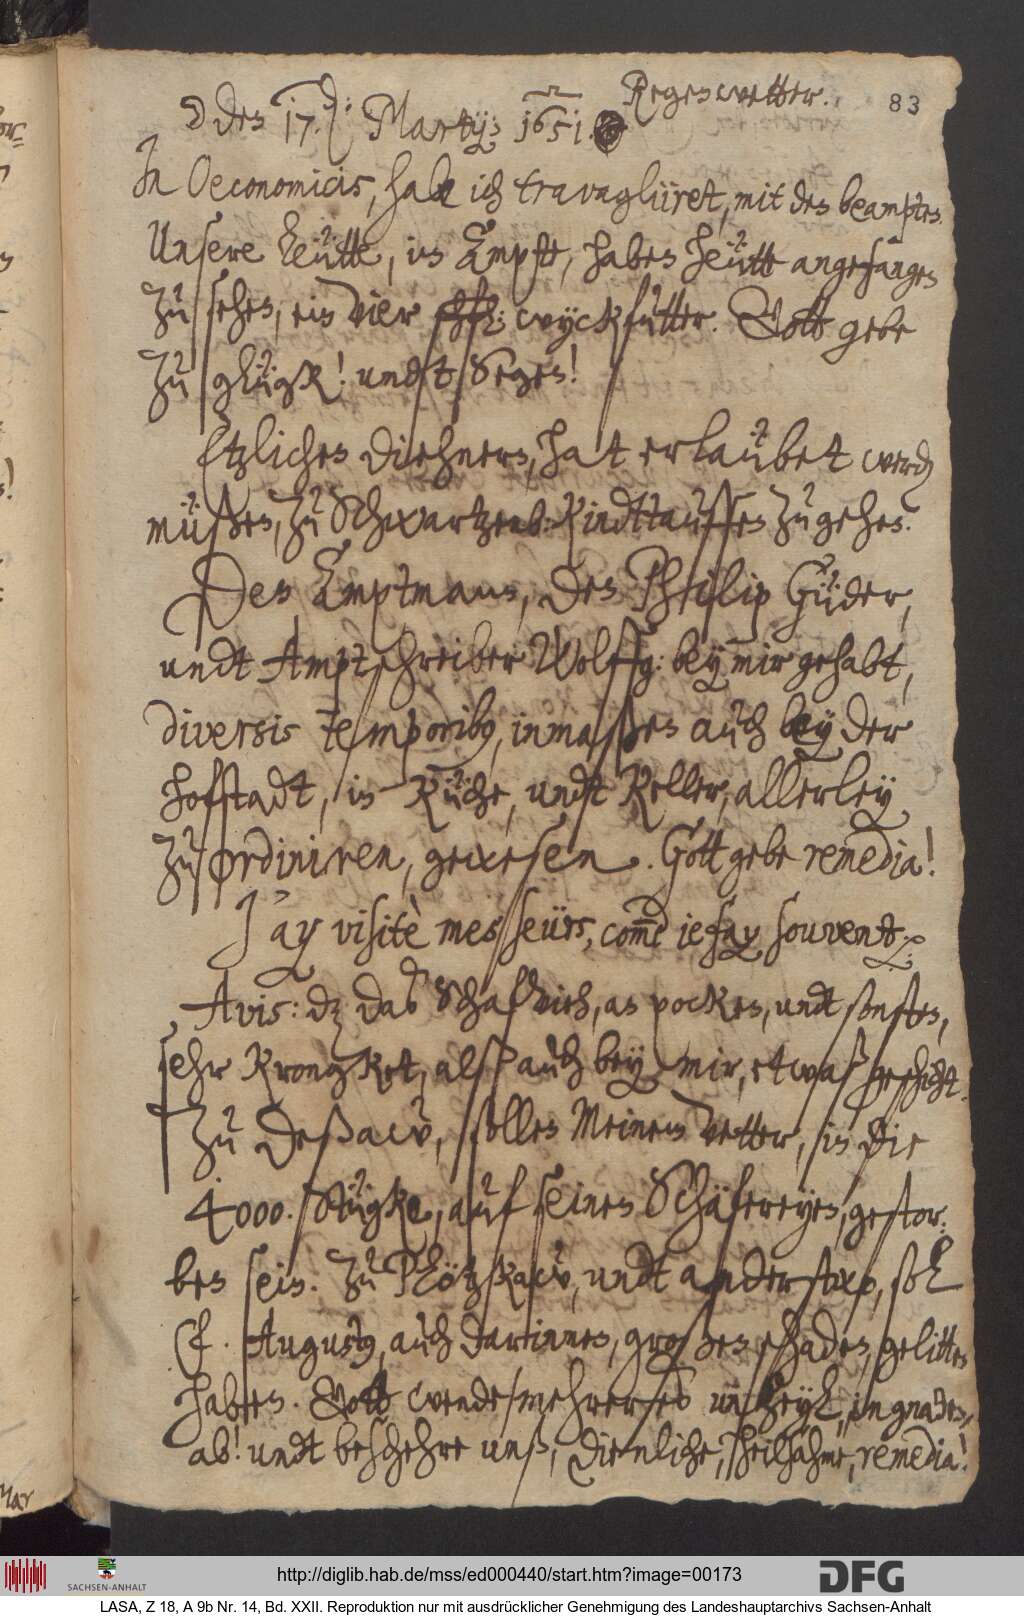 ☽ den 17.d: Martij: 1651. Regenwetter. 83
In Oeconomicis, habe ich travagliiret, mit den beampten.
Unsere leütte, im Ampt, haben heütt angefangen
zu sehen, ein vier wyckfutter. Gott gebe
zu glügk! undt Segen!
Etzlichen dienern, hat erlaübet werden
müßen, zu Schwartzenb: Kindttauffen zu gehen.
Den Amptmann, den Philip Güder,
undt Amptschreiber Wolffg: bey mir gehabt,
diversis temporibus, inmaßen auch bey der
hofstadt, in Küche, undt Keller, allerley
zu ordiniren, gewesen. Gott gebe remedia!
J'ay visitè messeürs, comme je fay souvent.
Avis: dz das Schafvieh, an pocken, undt sonsten,
sehr krongket, alß auch bey mir, etwaß geschicht.
Zu Deßaw, sollen Meinem Vetter, in die
4000. Stügke, auf seinen Schäfereyen, gestor-
ben sein. Zu Plötzkaw, undt anderstwo, soll
F. Augustus, auch darinnen, großen schaden, gelitten
haben. Gott wende mehrers unheyl, in gnaden,
ab! undt beschehre unß, dienliche, heilsahme, remedia!
Mar
SACHSEN-ANHALT
http://diglib.hab.de/mss/ed000440/start.htm?image=00173
DFG
LASA, Z 18, A 9b Nr. 14, Bd. XXII. Reproduktion nur mit ausdrücklicher Genehmigung des Landeshauptarchivs Sachsen-Anhalt